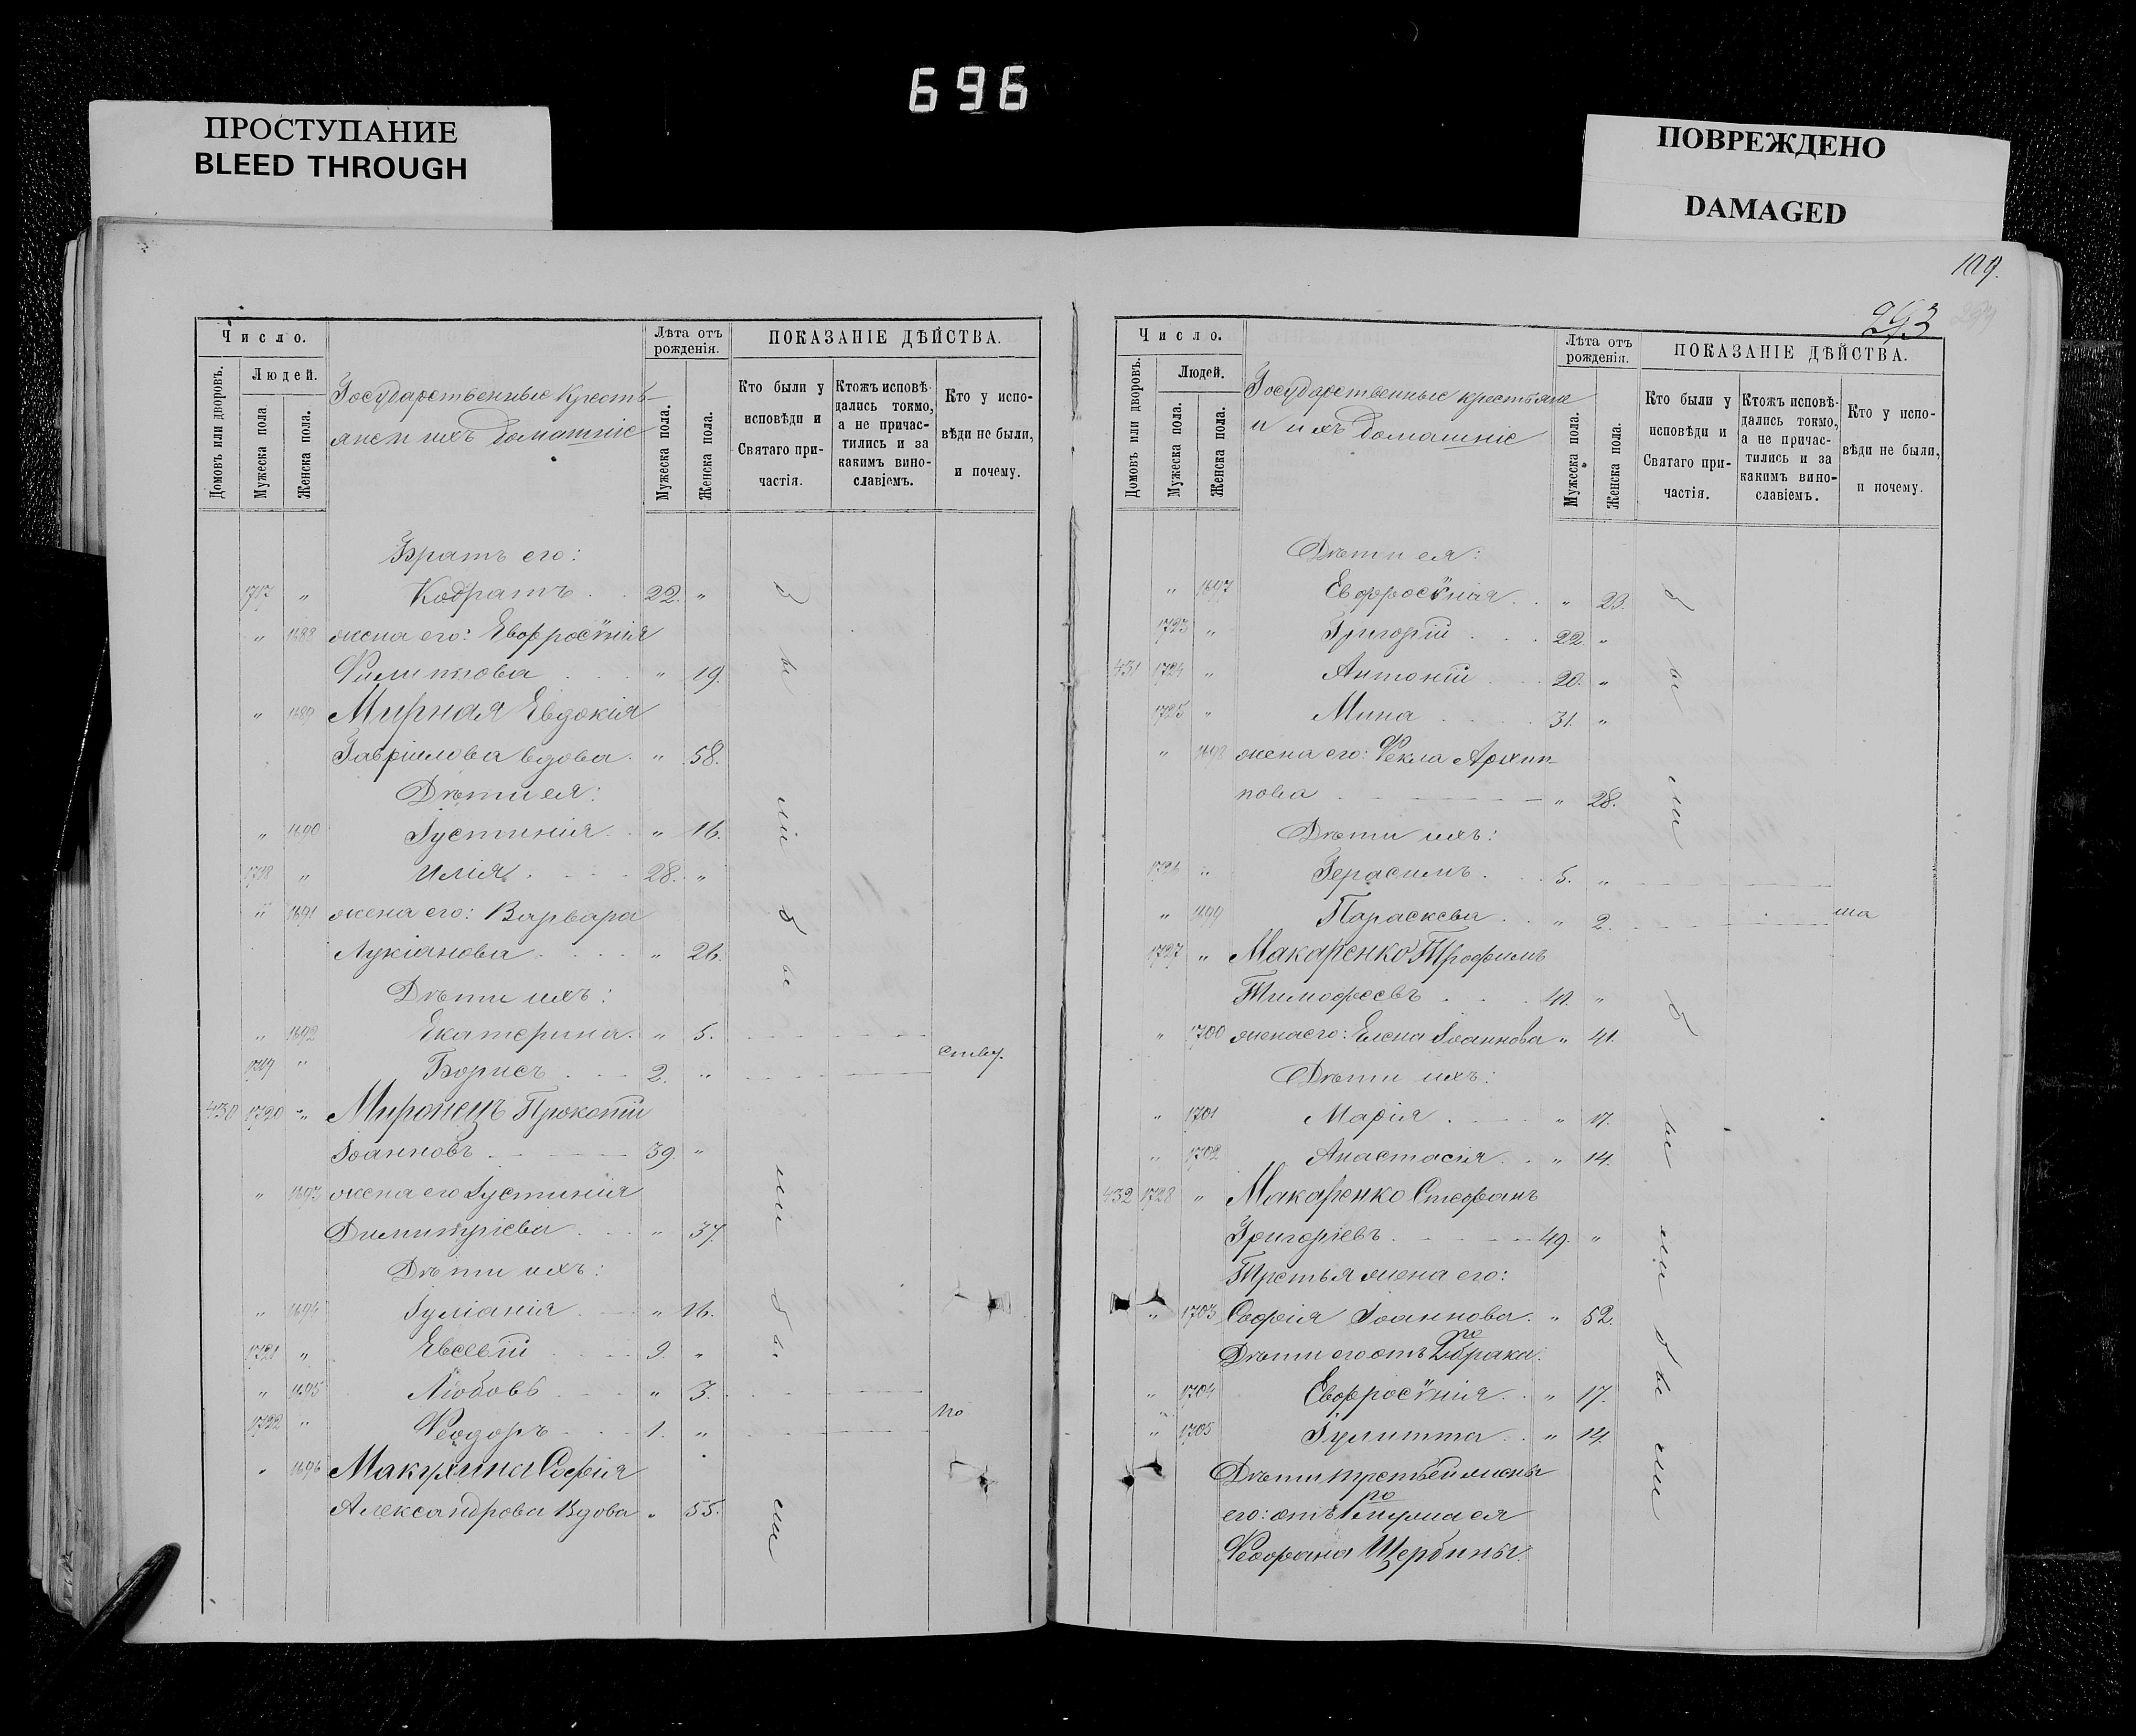 696
ПРОСТУПАНИЕ
BLEED THROUGH
ПОВРЕЖДЕНО
DAMAGED
109.
293
Число.
Людей.
Домовъ или дворовъ.
Мужеска пола
Женска пола.
Государственные Кресть-
яне и ихъ Домашніе
Лѣта отъ рожденія.
Мужеска пола.
Женска пола.
ПОКАЗАНІЕ ДѢЙСТВА.
Кто были у исповѣди и Святаго причастія.
Ктожъ исповѣдались токмо, а не причастились и за какимъ винославіемъ.
Кто у исповѣди не были, и почему.
Братъ его:
1717 " Кодратъ 22. "
" 1688 жена его: Евфросѵнія
Филиппова " 19.
" 1689 Мирная Евдокія
Гавріилова вдова " 58.
Дѣти ея:
" 1690 Іустинія " 16.
1718 " Илія 28. "
" 1691 жена его: Варвара
Лукіанова " 26.
Дѣти ихъ:
" 1692 Екатерина " 5.
1719 " Борисъ 2. "
430 1720 " Миронецъ Прокопій
Іоанновъ 39. "
" 1693 жена его Іустинія
Димитріева " 37.
Дѣти ихъ:
" 1694 Іуліанія " 16.
1721 " Евсевій 9. "
" 1695 Любовь " 3.
1722 " Ѳеодоръ 1. " по
" 1696 Макухина Софія
Александрова Вдова " 55.
были
были
были
Число.
Людей.
Домовъ или дворовъ.
Мужеска пола.
Женска пола.
Государственные крестьяне
и ихъ Домашніе
Лѣта отъ рожденія.
Мужеска пола.
Женска пола.
ПОКАЗАНІЕ ДѢЙСТВА.
Кто были у исповѣди и Святаго причастія.
Ктожъ исповѣдались токмо, а не причастились и за какимъ винославіемъ.
Кто у исповѣди не были, и почему.
Дѣти ея:
" 1697 Евфросѵнія " 23.
1723 " Григорій 22. "
431 1724 " Антоній 20. "
1725 " Мина 31. "
" 1698 жена его: Ѳекла Архип-
пова " 28.
Дѣти ихъ:
1726 " Герасимъ 5. "
" 1699 Параскева " 2.
1727 " Макаренко Трофимъ
Тимофеевъ "
" 1700 жена его: Елена Іоаннова " 41.
Дѣти ихъ:
" 1701 Марія " 17.
" 1702 Анастасія " 14.
432 1728 " Макаренко Стефанъ
Григоріевъ 49. "
Третья жена его:
" 1703 Софія Іоаннова " 52.
Дѣти его отъ 2го брака:
" 1704 Евфросѵнія " 17.
" 1705 Іулитта " 14.
Дѣти третьей жены
его: отъ 1го мужа ея
Ѳеофана Щербины.
были
были
были